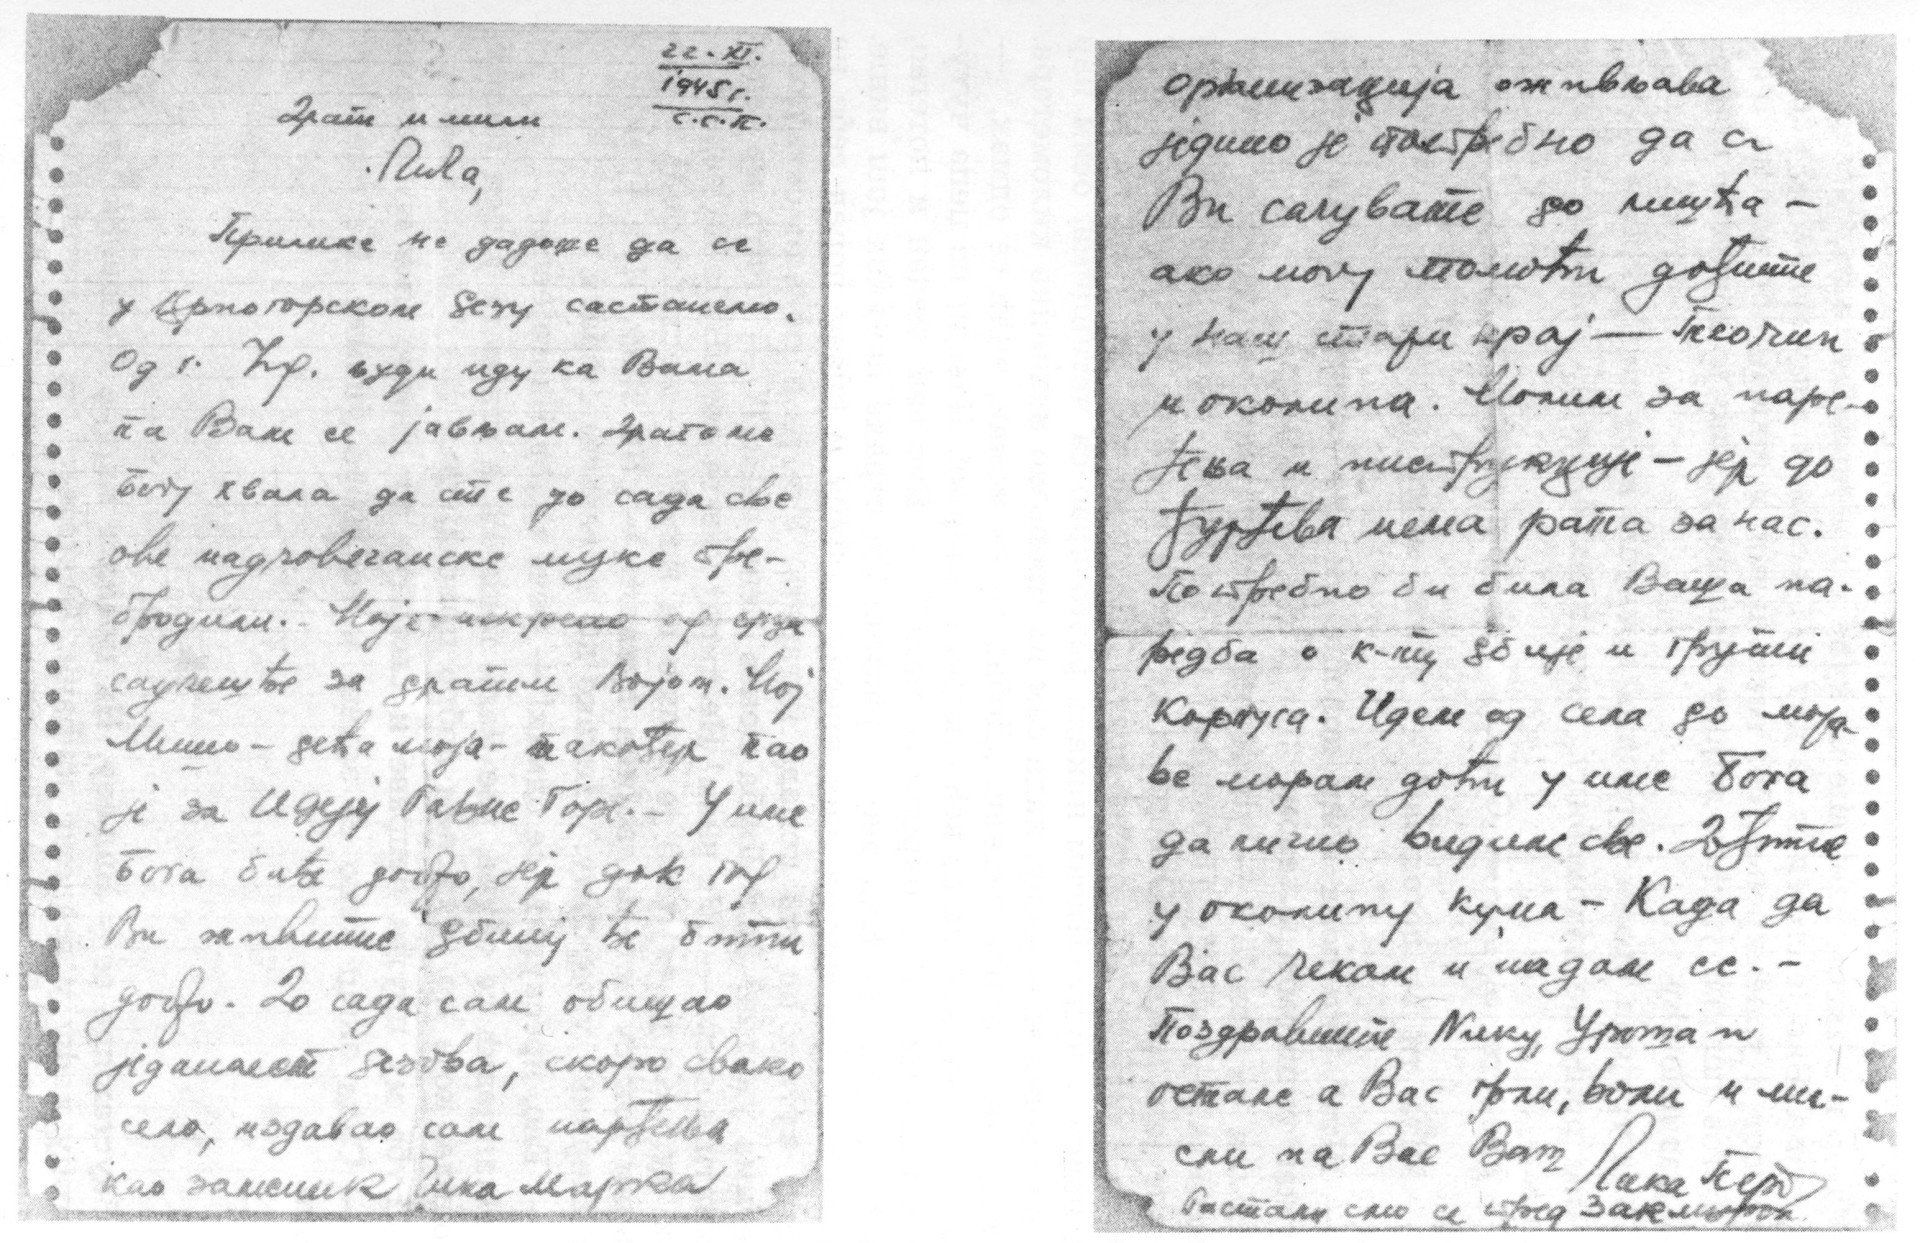 22. XI.
1945 г.
с.с.п.
Драги и мили
Прилике не дадоше да се
у Црногорском језу састанемо.
Од г. Ђур. људи иду ка Вама
па Вам се јављам. Драго ми
Богу хвала да сте до сада све
ове надчовечанске муке пре-
бродили. Моје искрено од срца
саучешће за драгим Војом. Мој
Мишо - деца моја - такођер пао
је за Идеју Равне Горе. - У име
Бога биће добро, јер док год
Ви живите ће бити
добро. До сада сам обишао
једанаест скоро свако
село, издавао сам наређења
као заменик Чика Марка
организација оживљава
једино је потребно да се
Ви сачувате до лишћа -
ако могу помоћи дођите
у наш стари крај — Теочин
и околина. Молим за наре-
ђења и инструкције - јер до
Ђурђева нема рата за нас.
Потребно би била Ваша на-
редба о к-ту и групи
Корпуса. Идем од села до
морам доћи у име Бога
да лично видим све. Дођите
у околину кума - Када да
Вас чекам и надам се. -
Поздравите Нику, Уроша и
остале а Вас грли, воли и ми-
сли на Вас Ваш
Лака Перо
Растали смо се пред